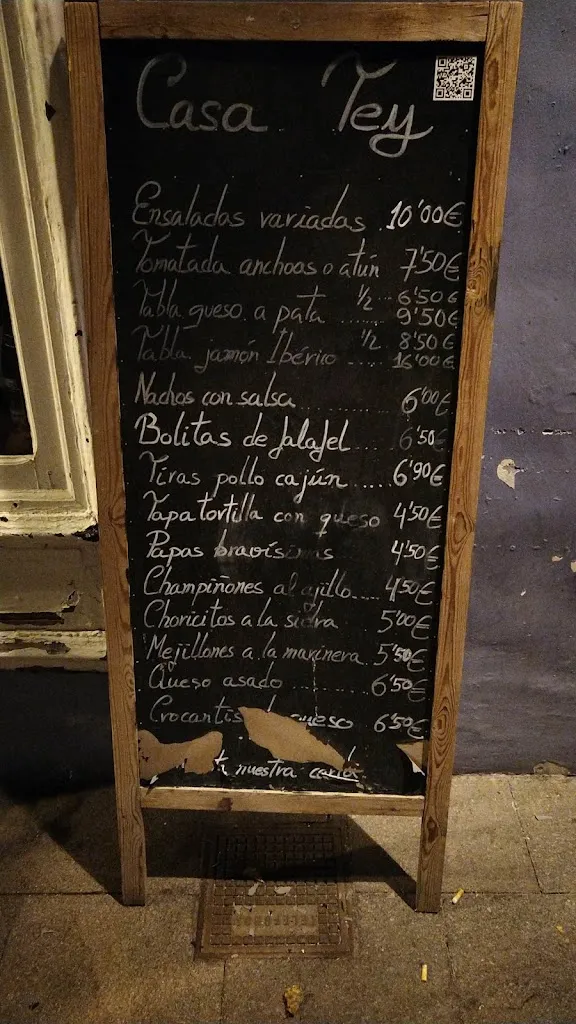 Casa Tey
Ensaladas variadas 10'00€
Tomatada anchoas o atún 7'50€
Tabla queso a pata ½ 6'50€
9'50€
Tabla jamón Ibérico ½ 8'50€
16'00€
Nachos con salsa 6'00€
Bolitas de falafel 6'50€
Tiras pollo cajún 6'90€
Tapa tortilla con queso 4'50€
Papas bravísimas 4'50€
Champiñones al ajillo 4'50€
Choricitos a la sidra 5'00€
Mejillones a la marinera 5'50€
Queso asado 6'50€
Crocantis queso 6'50€
nuestra carta